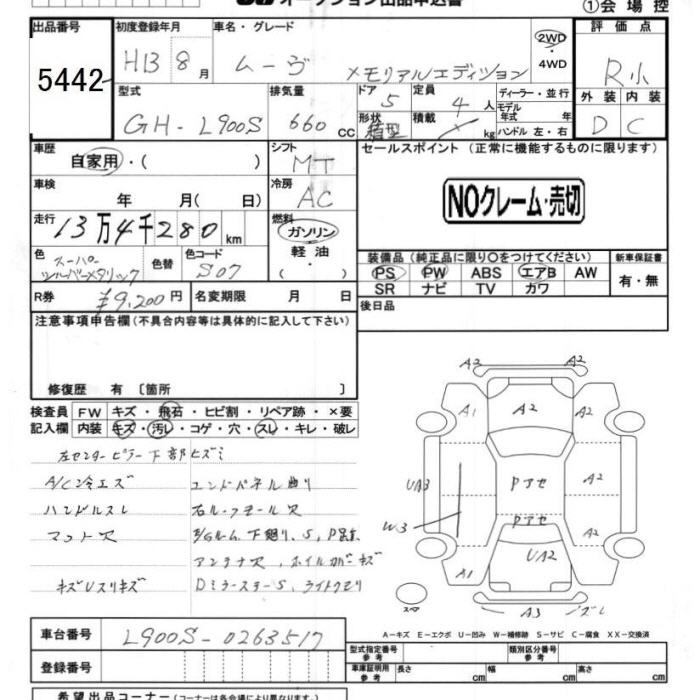 オークション出品申込書 ①会場控
出品番号 初度登録年月 車名・グレード 評価点
5442 H13 8月 ムーヴ メモリアルエディション 2WD・4WD R小
型式 排気量 ドア 定員 ディーラー・並行 外装 内装
GH-L900S 660cc 5 4人 モデル年式 年 D C
形状 箱型 積載 kg ハンドル 左・右
車歴 シフト セールスポイント (正常に機能するものに限ります)
自家用・( ) MT
車検 冷房
年 月( 日) AC NOクレーム・売切
走行 燃料
13万4千280km ガソリン
軽油・( )
色 色替 色コード 装備品(純正品に限り○をつけてください) 新車保証書
スーパーシルバーメタリック S07 PS PW ABS エアB AW 有・無
SR ナビ TV カワ
R券 ¥9,200円 名変期限 月 日 後日品
注意事項申告欄(不具合内容等は具体的に記入して下さい)
修復歴 有 〔箇所 〕
検査員 FW キズ・飛石・ヒビ割・リペア跡・×要
記入欄 内装 キズ・汚レ・コゲ・穴・スレ・キレ・破レ
左センターピラー下部ヒズミ
A/C冷エズ エンドパネル曲リ
ハンドルスレ 右ル-フモール欠
マット欠 下廻リ、S、P
アンテナ欠、ホイルカバーキズ
キズUスリキズ DミラーステーS、ライトクモリ
A2 A2
A1 A2 A2
UA3 Pアセ A2
W3 Pアセ A2
A1 UA2
スペア A3 ズレ
A-キズ E-エクボ U-凹み W-補修跡 S-サビ C-腐食 XX-交換済
車台番号 L900S-0263517 型式指定番号 参考 類別区分番号 参考
登録番号 車庫証明用 参考 長さ cm 幅 cm 高さ cm
希望出品コーナー(コーナーは各会場により異なります。)